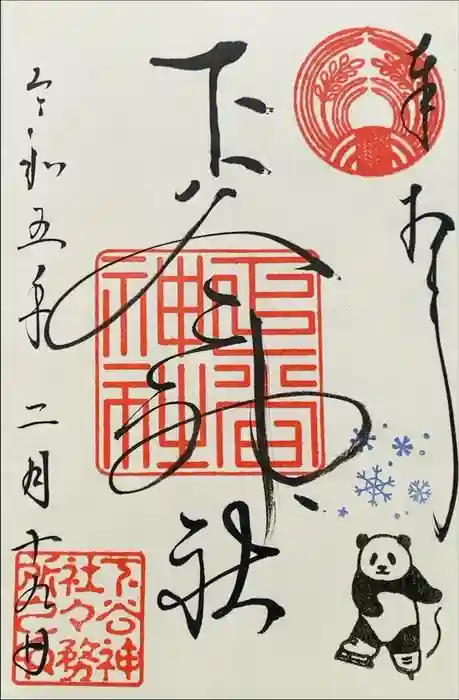 奉拝
下谷神社
令和五年二月十九日
下谷
神社
下谷神
社々務
所之印